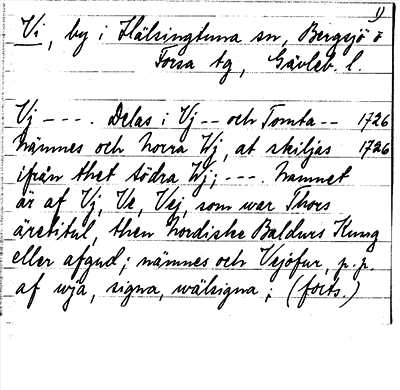 1)
Vi, by i Hälsingtuna sn, Bergsjö o
Forsa tg, Gävleb. l.
Vj ---. Delas i Vj -- och Tomta -- 1726
nämnes och norra Wj, at skiljas 1726
ifrån thet södra Wj; ---. Namnet
är af Vj, Ve, Vej, som war Thors
äretitul, then Nordiske Baldurs Kung
eller afgud; nämnes och Vejofur, p.p.
af wja, signa, wälsigna; (forts.)